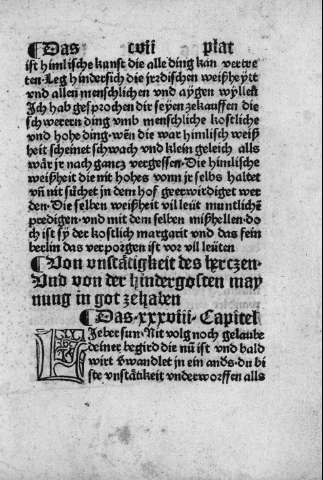 ¶Das cvii plat
ist himlische kunst die alle ding kan vertre
ten. Leg hindersich die jrrdischen weißheytt
vnd allen menschlichen vnd aygen wyllen
Jch hab gesprochen dir seyen zekauffen die
schwerern ding vmb menschliche kostliche
vnd hohe ding. wen̄ die war himlisch weiß
heit scheinet schwach vnd klein geleich als
wår sy nach gancz vergessen. Die himlische
weißheit die nit hohes vonn jr selbs haltet
vn̄ nit sůchet in dem hof geerwirdiget wer
den. Die selben weißheit vil leüt muntlichē
predigen. vnd mit dem selben mißhellen. do
ch ist sÿ der kostlich margarit vnd das fein
berlin das verporgen ist vor vil leüten
¶Von vnståtigkeit des herczen.
Vnd von der hindergosten may
nung in got zehaben
¶Das .xxxviii. Capitel
LJeber sun. Nit volg noch gelaube
deiner begird die nu᷑ ist vnd bald
wirt v̄wandlet in ein and̄s. du bi
ste vnståtikeit vnderworffen alls